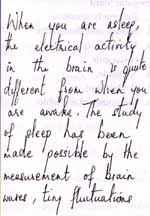 When you are asleep,
the electrical activity
in the brain is quite
different from when you
are awake. The study
of sleep has been
made possible by the
measurement of brain
waves, tiny fluctuations